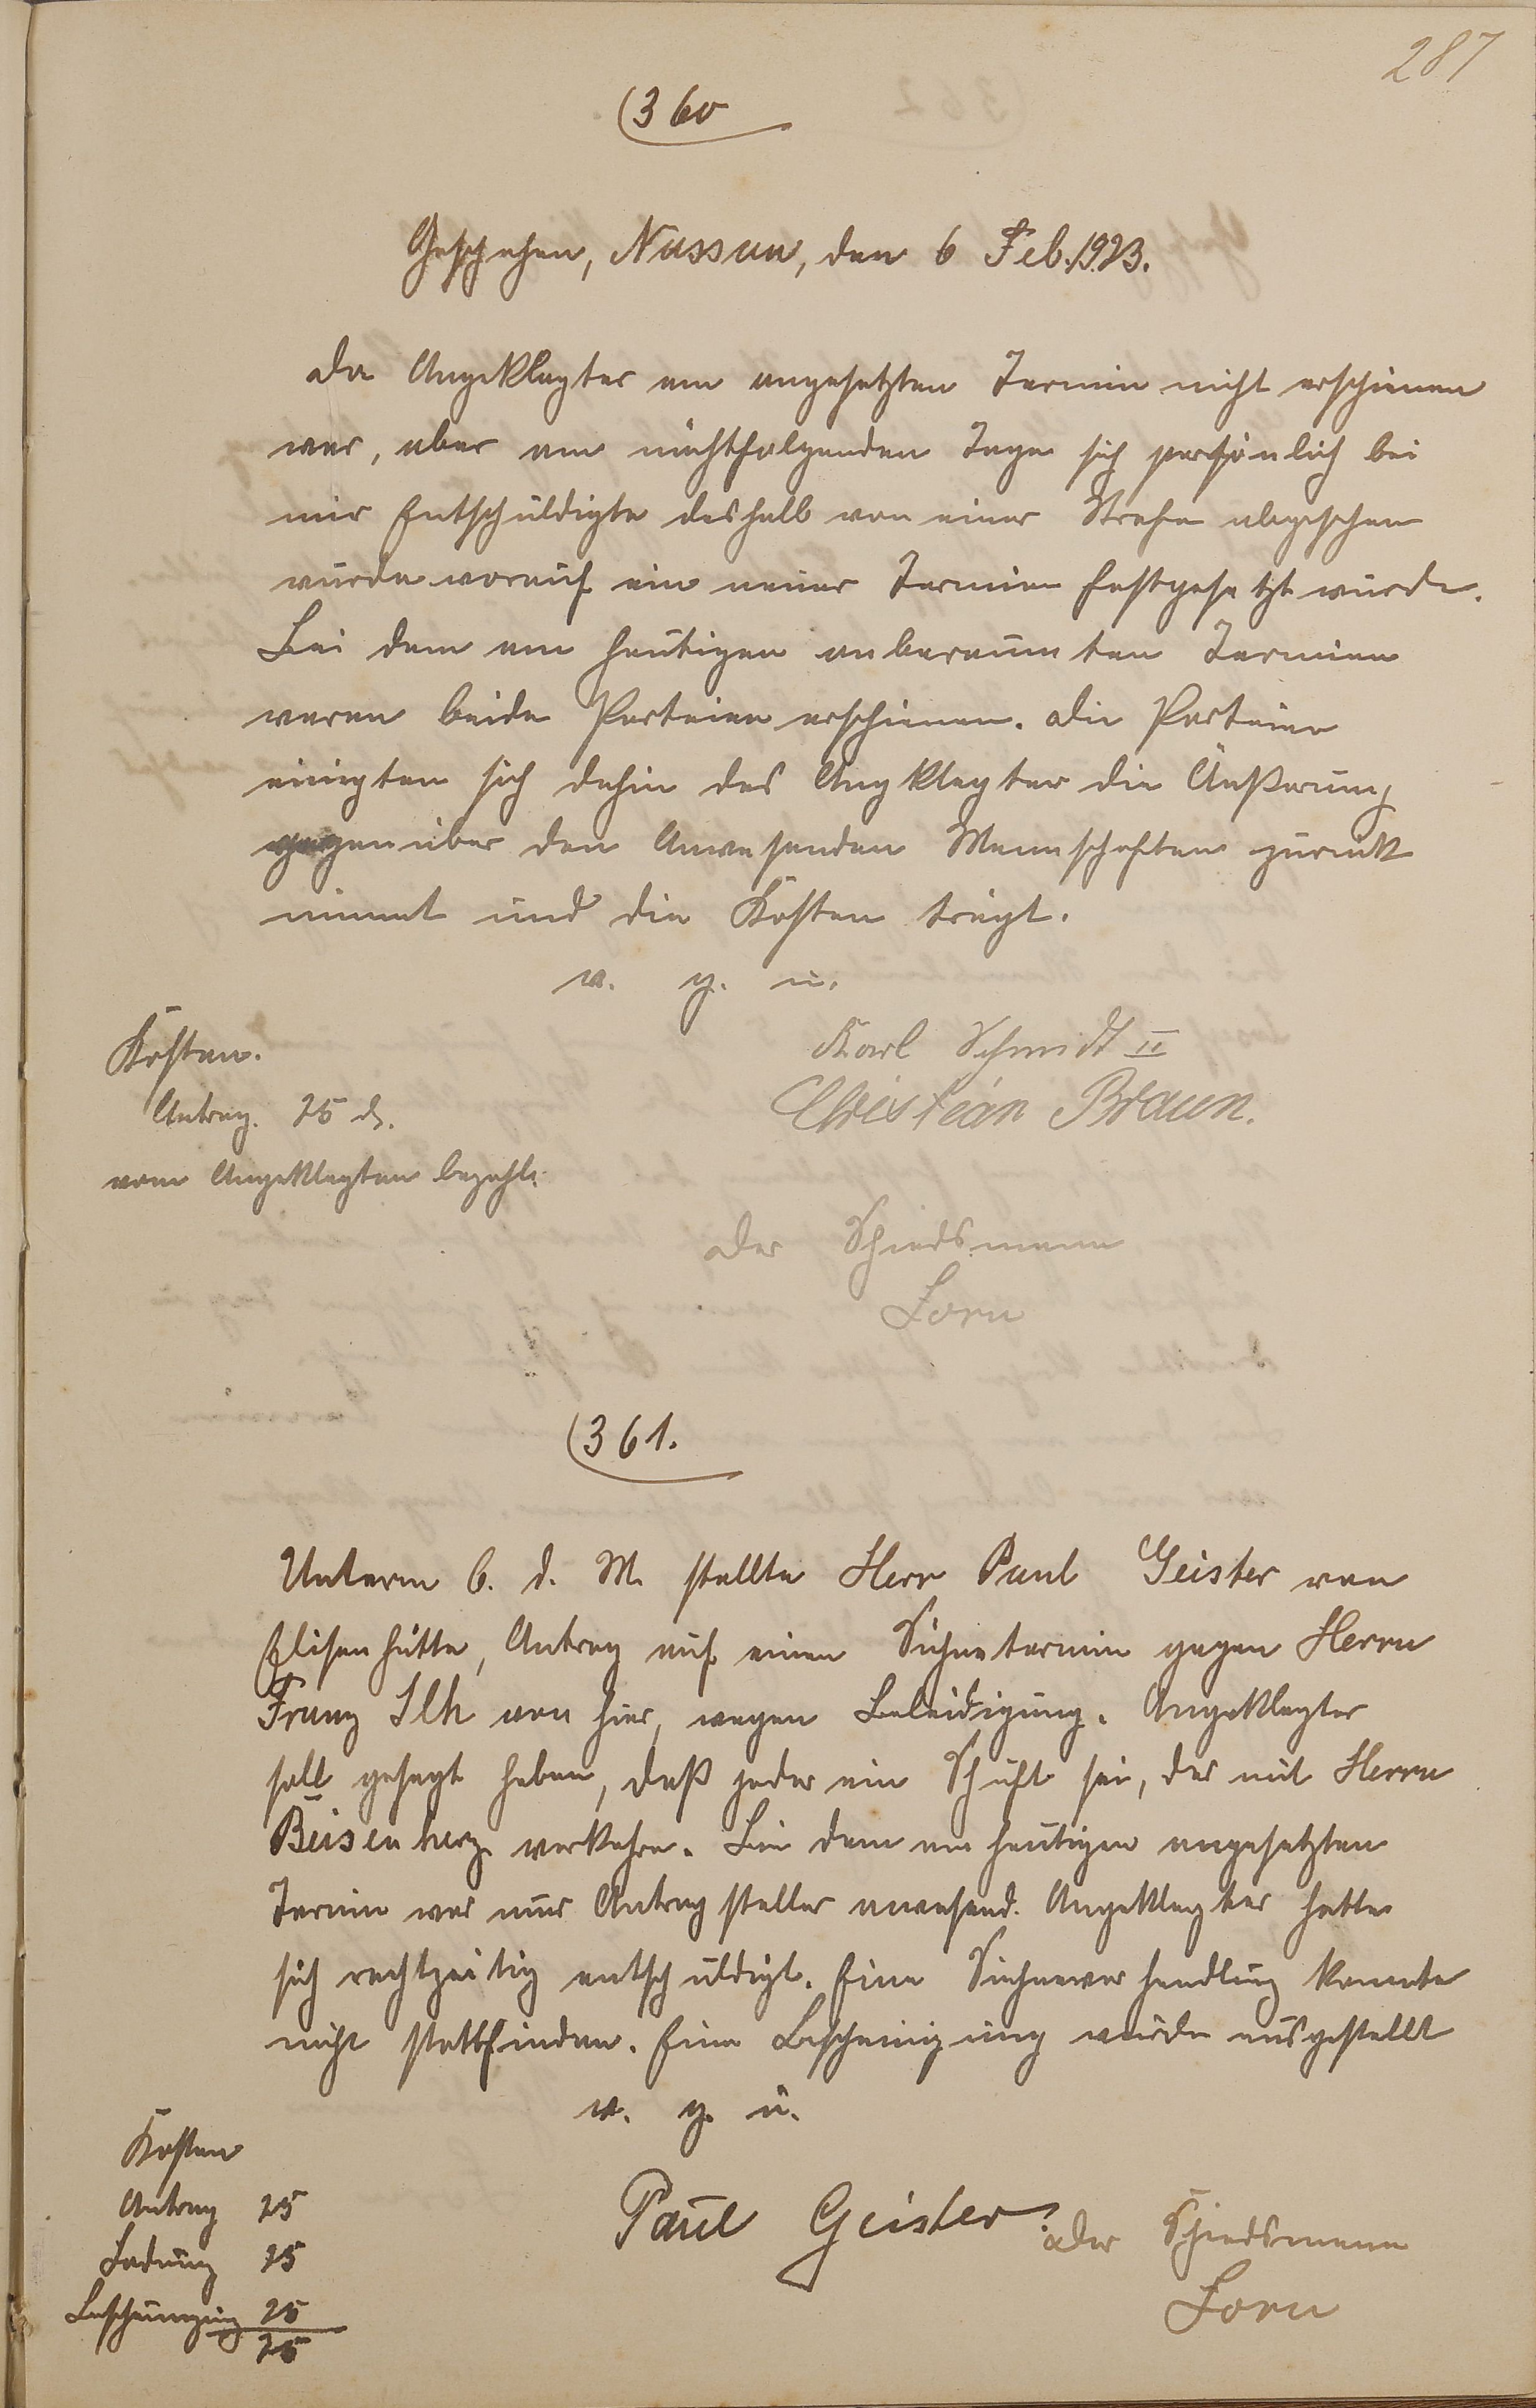 287
(360
Geschehen, Nassau, den 6 Feb. 1923.
Da Angeklagter am angesetzten Termin nicht erschienen
war, aber am nächstfolgenden Tage sich persönlich bei
mir Entschuldigte deshalb von einer Strafe abgesehen
wurde worauf ein neuer Termien festgesetzt wurde.
Bei dem am heutigen anberaumten Termien
waren beide Parteien erschienen. Die Parteien
einigten sich dahin das Angklagter die Äußerung
gegenüber den Anwesenden Mannschaften zurück
nimmt und die Kosten trägt.
v. g. u.
Karl Schmidt II
Christian Braun.
Kosten.
Antrag. 25 M.
vom Angeklagten bezahlt.
Der Schiedsmann
Lorn
(361.
Unterm 6. d. M. stellte Herr Paul Geister von
Elisenhütte, Antrag auf einen Sühnetermin gegen Herrn
Franz Ilh von hier, wegen Beleidigung. Angeklagter
soll gesagt haben, daß jeder ein Schuft sei, der mit Herrn
Beisenherz verkehre. Bei dem am heutigen angesetzten
Termin war nur Antragsteller anwesend. Angeklagter hatte
sich rechtzeitig entschuldigt. Eine Sühneverhandlung konnte
nicht stattfinden. Eine Bescheinigung wurde ausgestellt
v. g. u.
Paul Geister.
Der Schiedsmann
Lorn
Kosten
Antrag 25
Ladung 25
Bescheinigung 25
75